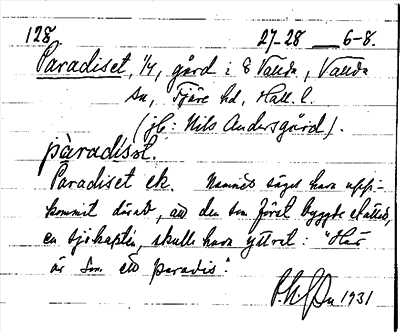 128 27-28 — 6-8.
Paradiset, 1/4, gård i 8 Valida, Valida
sn, Fjäre hd, Hall. l.
(jb: Nils Andersgård).
pàradisət.
Paradiset ek. Namnet säges hava upp-
kommit därav, att den som först byggde stället,
en sjökapten, skulle hava yttrat: "Här
är som ett paradis".
1931